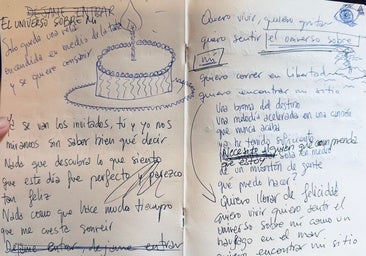 DEJAME ENTRAR
EL UNIVERSO SOBRE MI
Solo queda una vela
encendida en medio de la tarta
y se quiere consumir
Ya se van los invitados, tú y yo nos
miramos sin saber bien qué decir
Nada que descubra lo que siento
que este día fue perfecto y parezco
tan feliz
Nada como que hace mucho tiempo
que me cuesta sonreir
Dejame entrar, dejame entrar
Quiero vivir, quiero gritar
quiero sentir el universo sobre
mi
quiero correr en libertad
quiero encontrar mi sitio
Una broma del destino
una melodía acelerada en una canción
que nunca acaba
ya he tenido suficiente
Necesito alguien que comprenda
que estoy sola en medio
de un montón de gente
qué puedo hacer?
Quiero llorar de felicidad
quiero vivir quiero sentir el
universo sobre mi como un
naufrago en el mar
quiero encontrar mi sitio